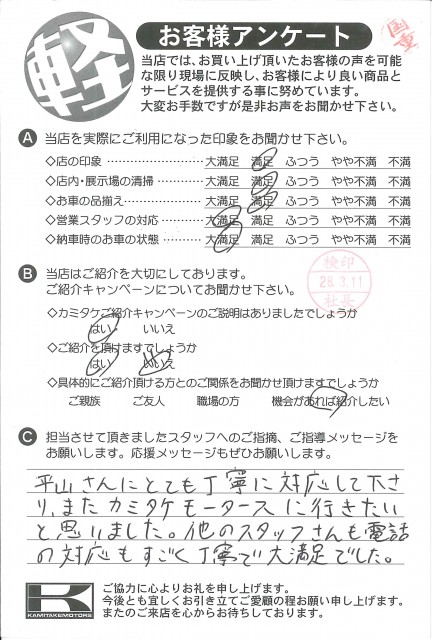 軽
お客様アンケート
当店では、お買い上げ頂いたお客様の声を可能
な限り現場に反映し、お客様により良い商品と
サービスを提供する事に努めています。
大変お手数ですが是非お声をお聞かせ下さい。
A 当店を実際にご利用になった印象をお聞かせ下さい。
◇店の印象 大満足 満足 ふつう やや不満 不満
◇店内・展示場の清掃 大満足 満足 ふつう やや不満 不満
◇お車の品揃え 大満足 満足 ふつう やや不満 不満
◇営業スタッフの対応 大満足 満足 ふつう やや不満 不満
◇納車時のお車の状態 大満足 満足 ふつう やや不満 不満
B 当店はご紹介を大切にしてあります。
ご紹介キャンペーンについてお聞かせ下さい。
検印
28.3.11
社長
◇カミタケご紹介キャンペーンのご説明はありましたでしょうか
はい いいえ
◇ご紹介を頂けますでしょうか
はい いいえ
◇具体的にご紹介頂ける方とのご関係をお聞かせ頂けますでしょうか
ご親族 ご友人 職場の方 機会があれば紹介したい
C 担当させて頂きましたスタッフへのご指摘、ご指導メッセージを
お願いします。応援メッセージもぜひお願いします。
平山さんにとても丁寧に対応して下さ
り、またカミタケモータースに行きたい
と思いました。他のスタッフさんも電話
の対応もすごく丁寧で大満足でした。
KAMITAKEMOTORS
ご協力に心よりお礼を申し上げます。
今後とも宜しくお引き立てご愛顧の程お願い申し上げます。
またのご来店を心からお待ちしております。